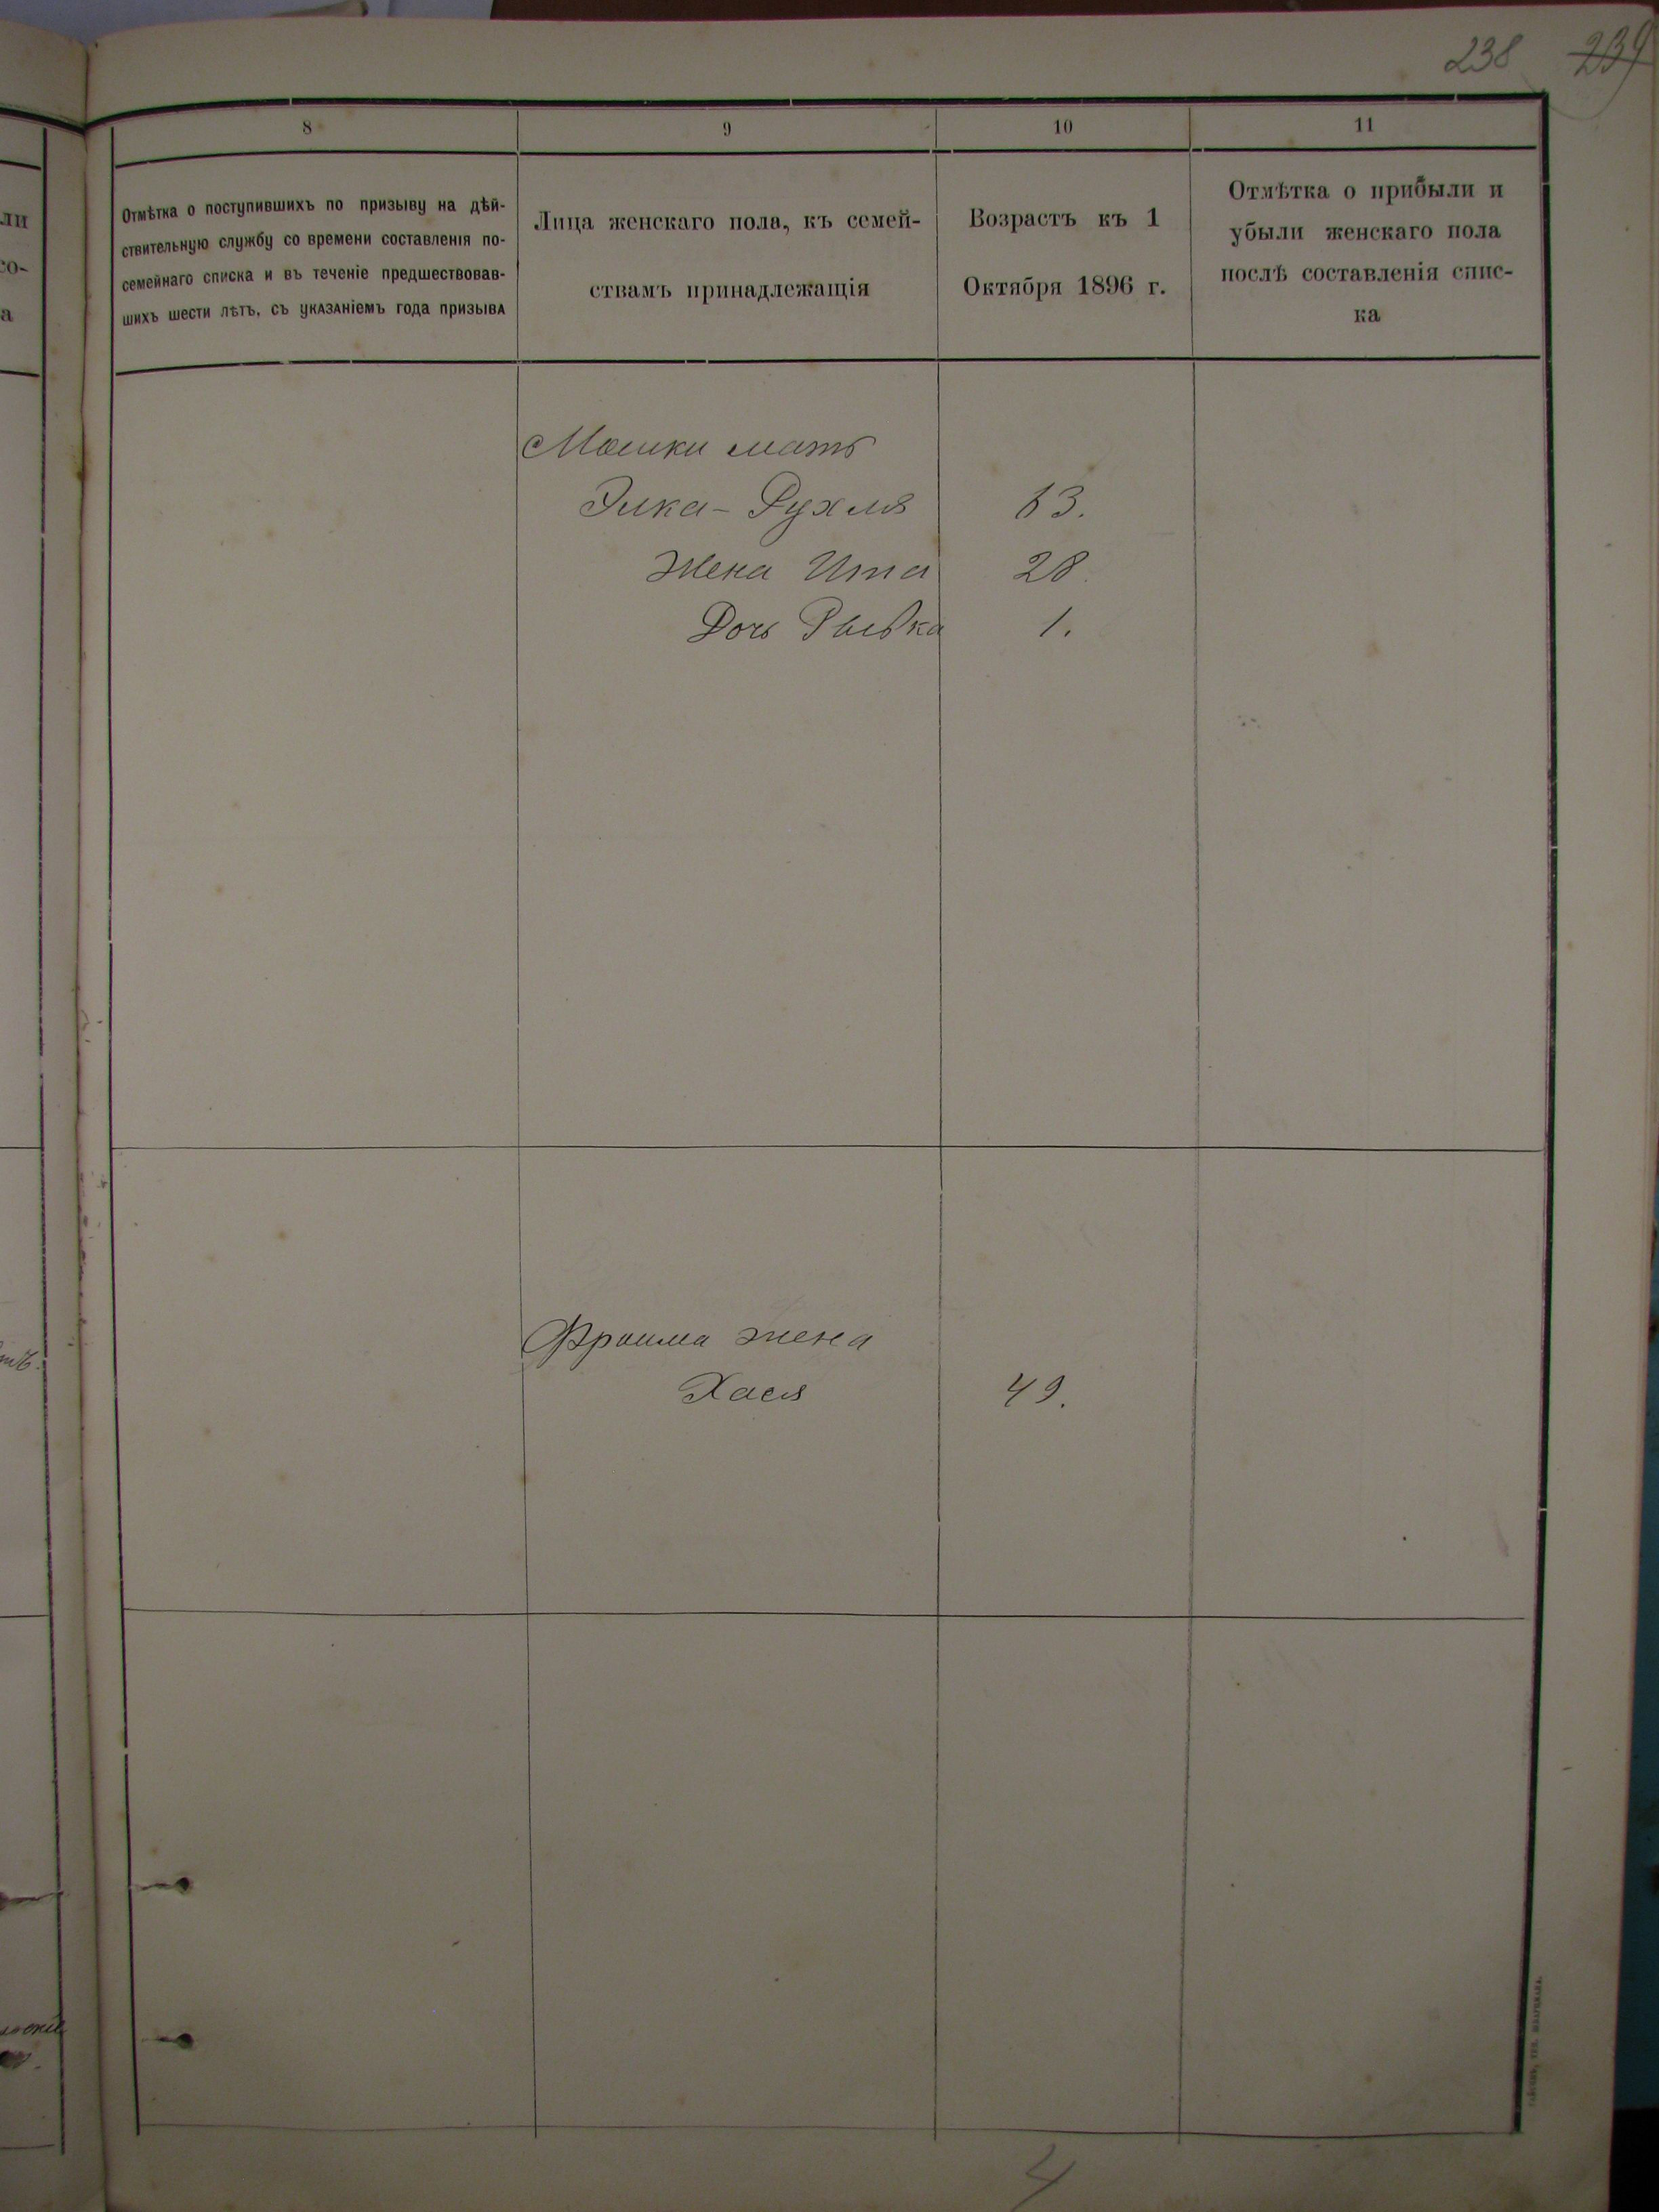 238 239
8 9 10 11
Отмѣтка о поступившихъ по призыву на дѣй-
ствительную службу со времени составленія по-
семейнаго списка и въ теченіе предшествовав-
шихъ шести лѣтъ, съ указаніемъ года призыва
Лица женскаго пола, къ семей-
ствамъ принадлежащія
Возрастъ къ 1
Октября 1896 г.
Отмѣтка о прибыли и
убыли женскаго пола
послѣ составленія спис-
ка
Мошки мать
Элка-Рухля 63.
Жена Ита 28.
Дочь Рывка 1.
Фроима жена
Хася 49.
4